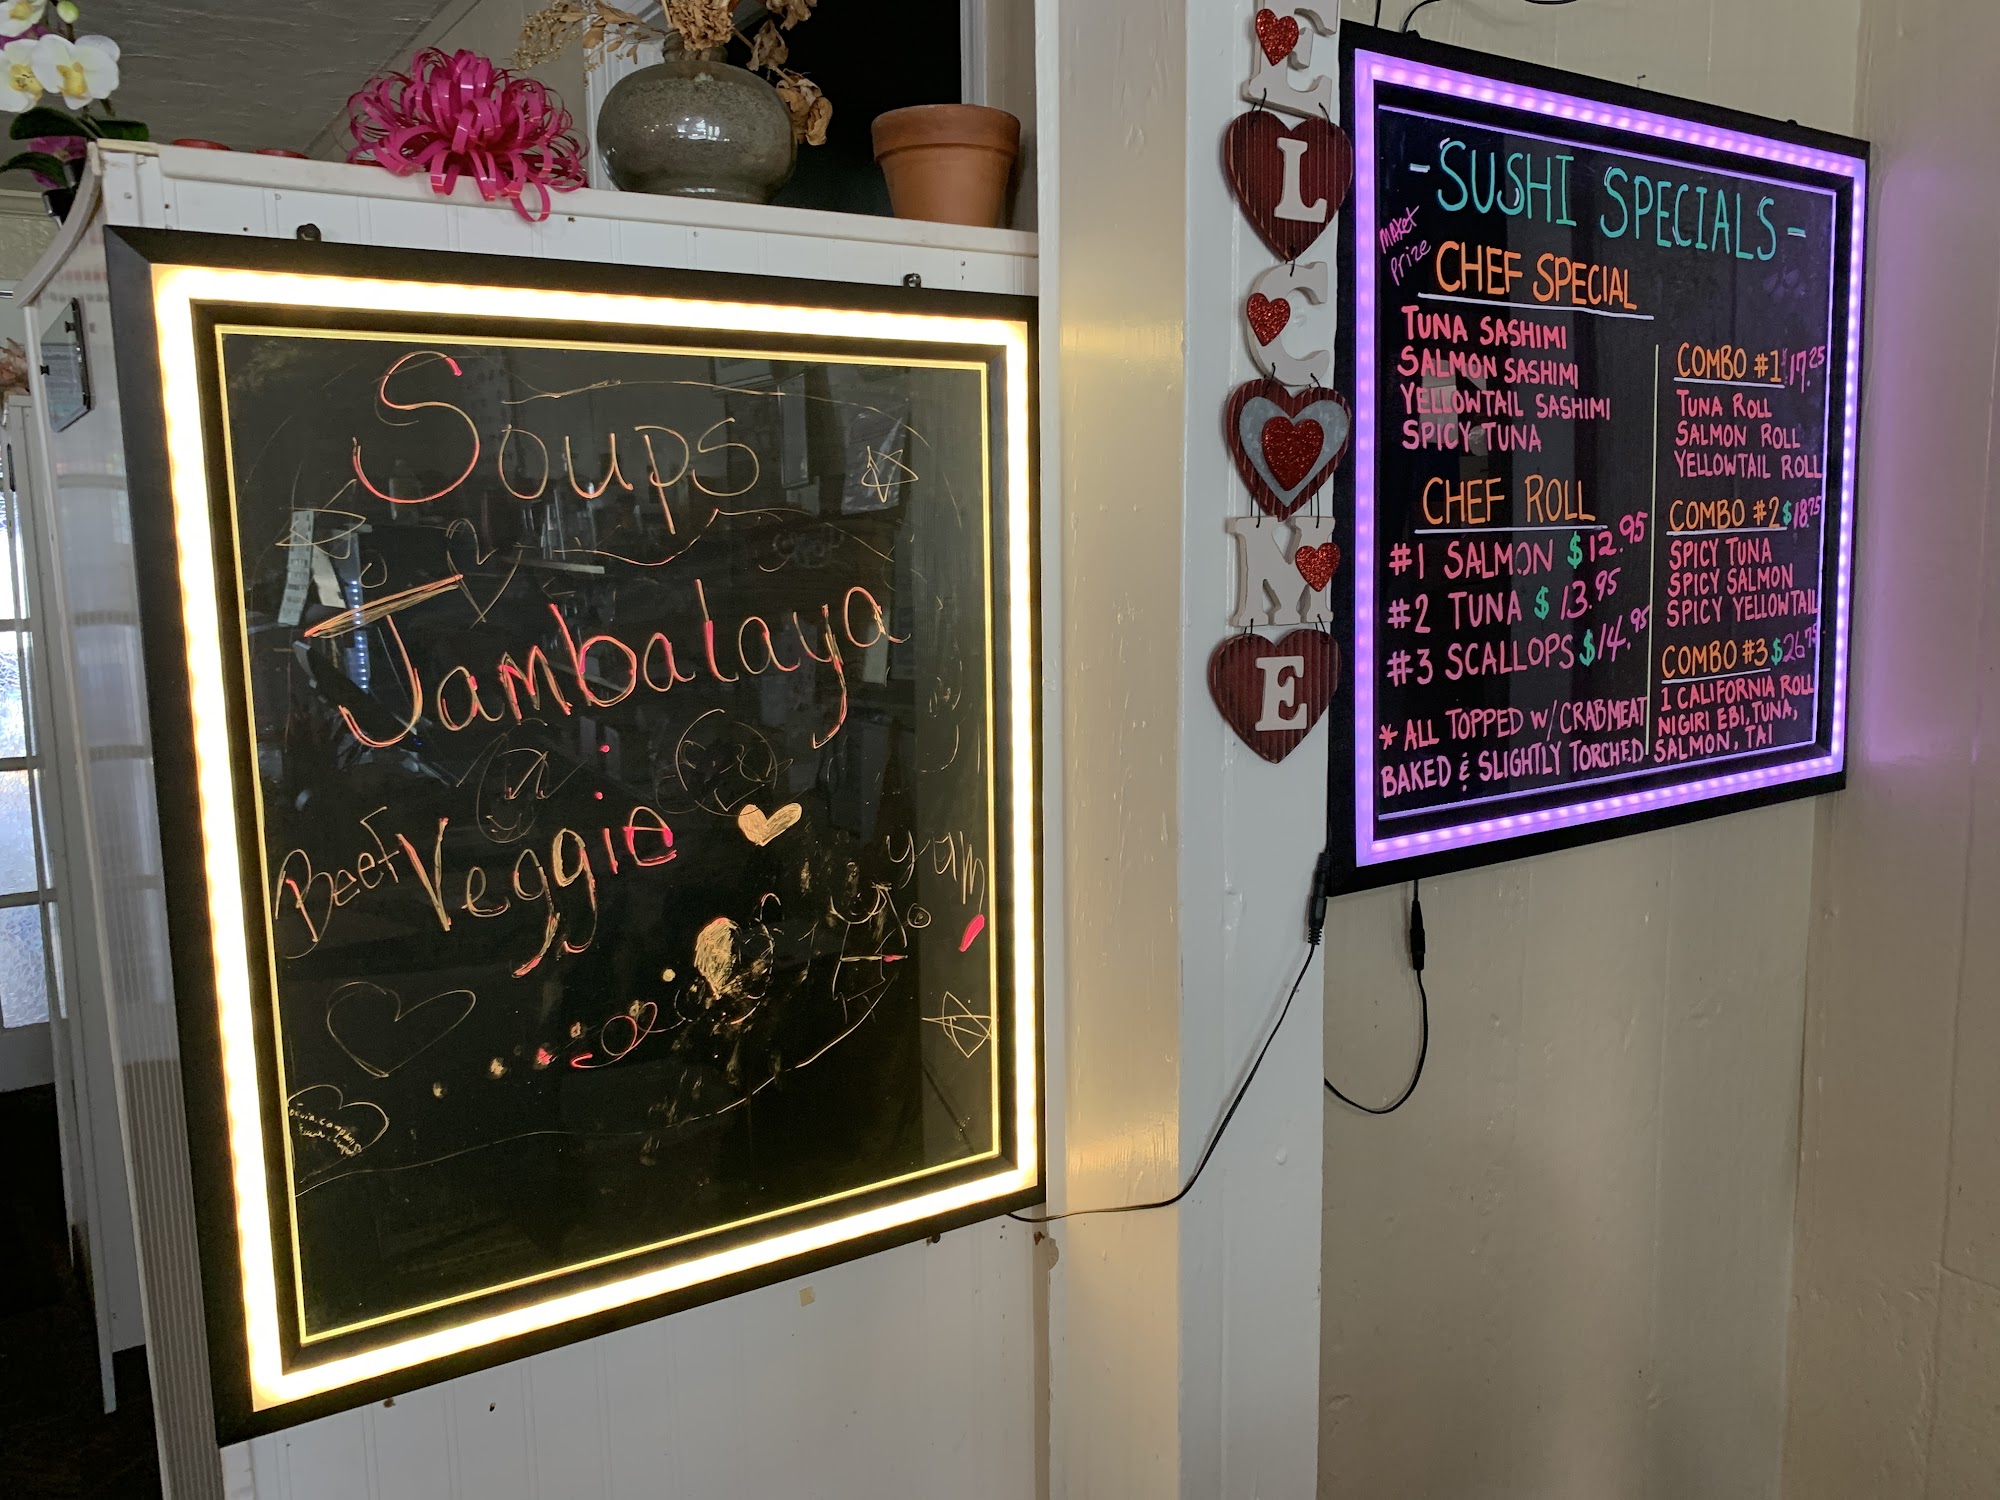 Soups
Jambalaya
Beef Veggie
yam
ELCOME
- SUSHI SPECIALS -
MAKET
Prize
CHEF SPECIAL
TUNA SASHIMI
SALMON SASHIMI
YELLOWTAIL SASHIMI
SPICY TUNA
CHEF ROLL
#1 SALMON $12.95
#2 TUNA $13.95
#3 SCALLOPS $14.95
* ALL TOPPED W/ CRABMEAT
BAKED & SLIGHTLY TORCHED
COMBO #1 $17.25
TUNA ROLL
SALMON ROLL
YELLOWTAIL ROLL
COMBO #2 $18.75
SPICY TUNA
SPICY SALMON
SPICY YELLOWTAIL
COMBO #3 $26.75
1 CALIFORNIA ROLL
NIGIRI EBI, TUNA,
SALMON, TAI